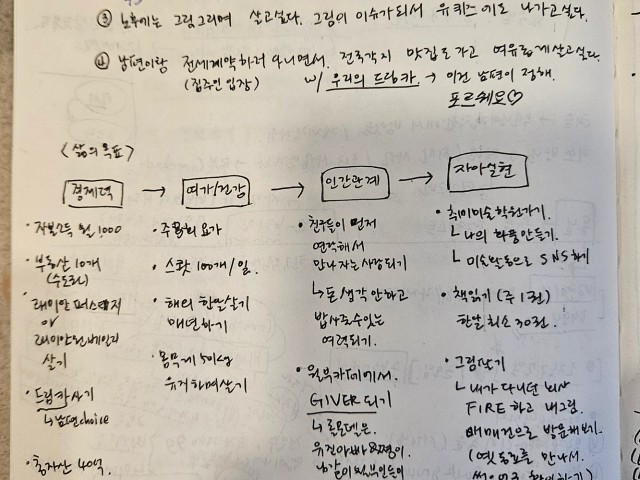 ③ 노후에는 그림그리며 살고싶다. 그림이 이슈가되서 유퀴즈에도 나가고싶다.
④ 남편이랑 전세계약하러 다니면서, 전국각지 맛집도가고 여유롭게살고싶다.
(집주인 입장) w/ 우리의 드림카 → 이건 남편이 정해.
포르쉐요♡
<삶의 목표>
경제력 → 여가/건강 → 인간관계 → 자아실현
· 자본소득 월 1,000
· 부동산 10개
(수도권)
래미안 퍼스티지
or
래미안원베일리
살기
· 드림카사기
↳남편choice
· 총자산 40억
· 주 요가
· 스쿼트 100개/일.
· 해외 한달살기
매년하기
· 몸무게 50kg
유지하며살기
· 친구들이 먼저
연락해서
만나자는사람되기
↳돈 생각 안하고
밥사줄수있는
여력되기.
· 월부카페에서.
GIVER 되기
↳롤모델은.
· 취미미술학원가기.
ㄴ 나의 화풍만들기.
ㄴ 미술활동으로 SNS하기
· 책읽기 (주 1권)
한달 최소 30권.
· 그림팔기
ㄴ 내가 다니던 회사
FIRE 하고 내그림.
판매건으로 방문해보기.
(옛 동료를 만나서.